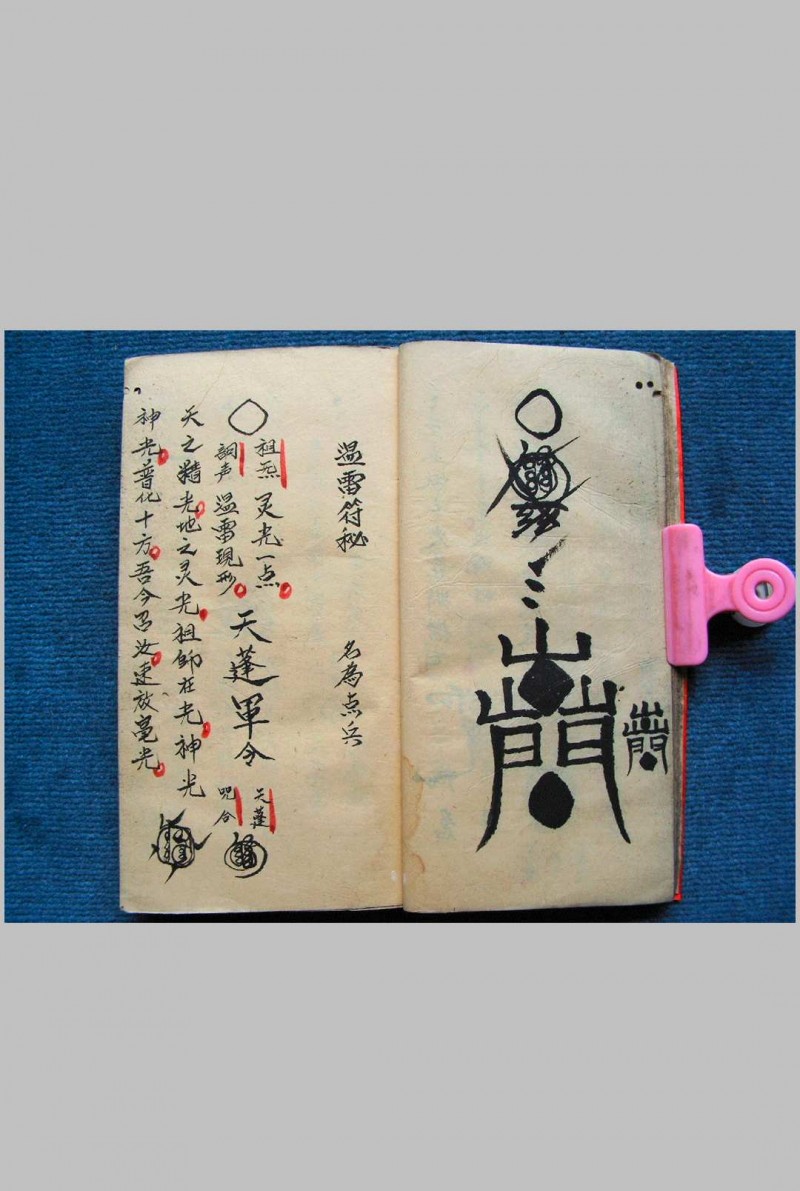 温雷符秘 名為点兵
祖炁 灵光一点 天蓬軍令 天蓬
声 温雷現形 咒令
天之精光地之灵光祖师在光神光
神光普化十方吾今召汝速放毫光